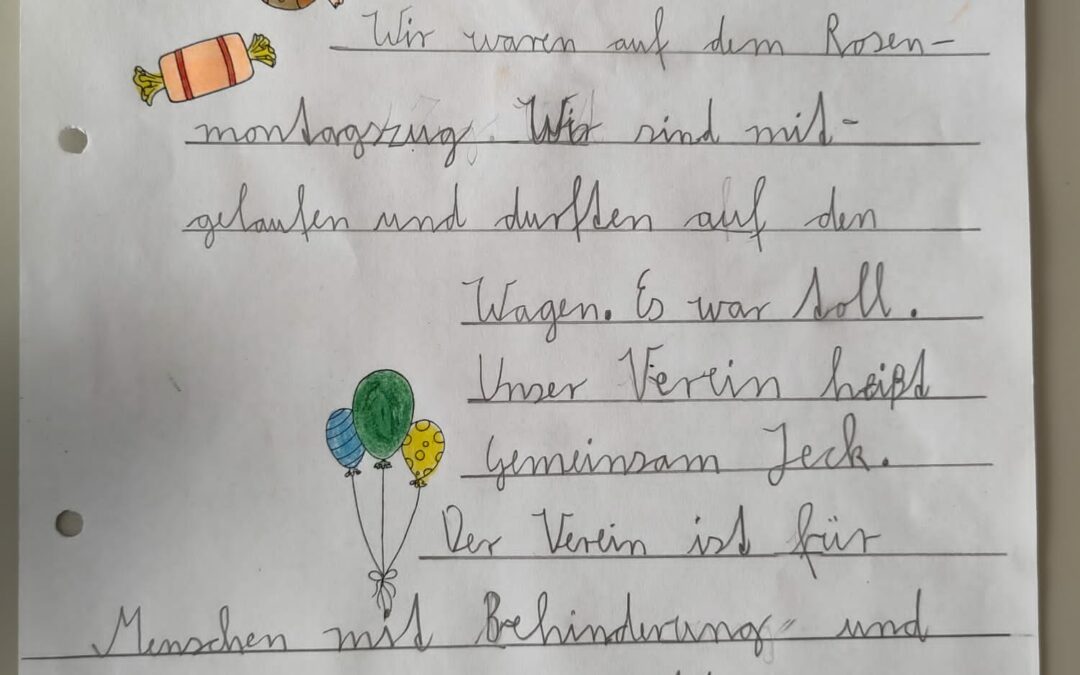 Wir waren auf dem Rosen-
montagszug. Wir sind mit-
gelaufen und durften auf den
Wagen. Es war toll.
Unser Verein heißt
Gemeinsam Jeck.
Der Verein ist für
Menschen mit Behinderung und